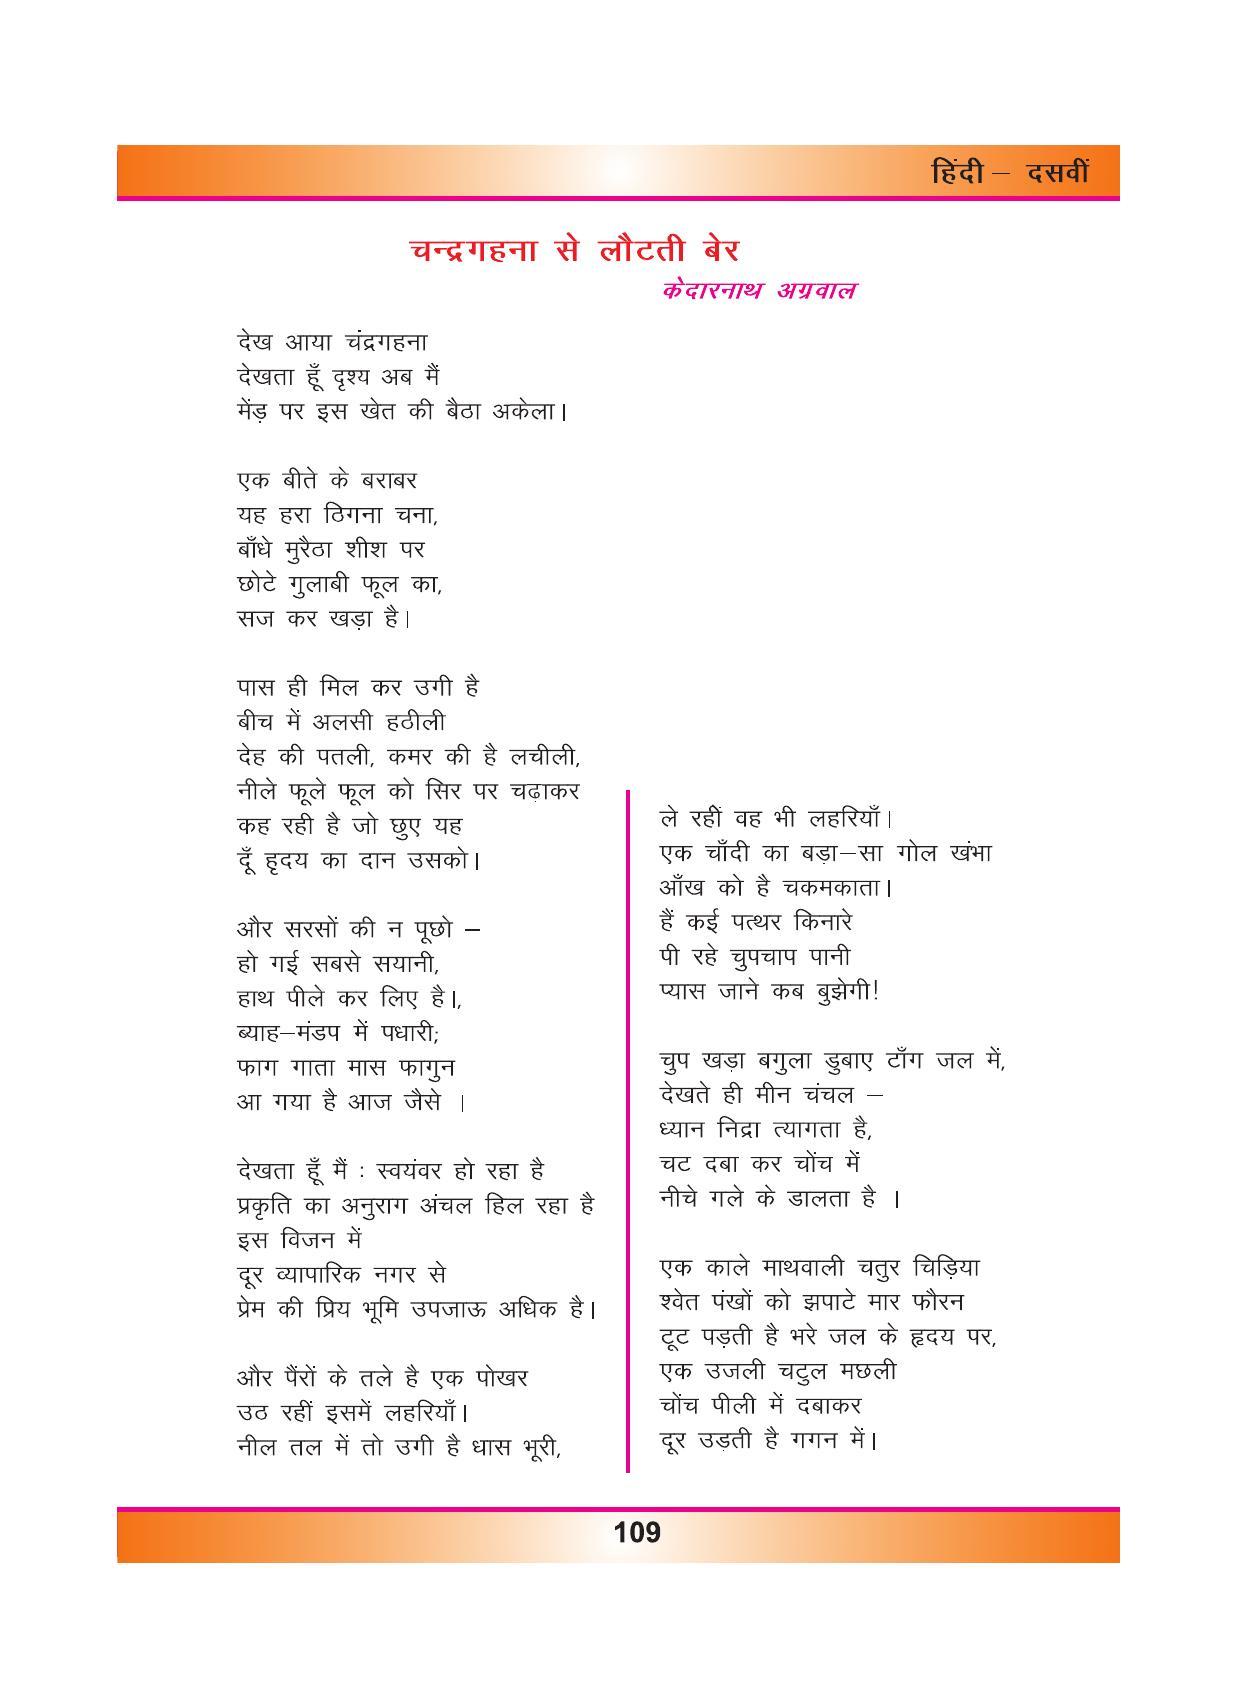 हिंदी – दसवीं
चन्द्रगहना से लौटती बेर
केदारनाथ अग्रवाल
देख आया चंद्रगहना
देखता हूँ दृश्य अब मैं
मेंड़ पर इस खेत की बैठा अकेला।
एक बीते के बराबर
यह हरा ठिगना चना,
बाँधे मुरैठा शीश पर
छोटे गुलाबी फूल का,
सज कर खड़ा है।
पास ही मिल कर उगी है
बीच में अलसी हठीली
देह की पतली, कमर की है लचीली,
नीले फूले फूल को सिर पर चढ़ाकर
कह रही है जो छुए यह
दूँ हृदय का दान उसको।
और सरसों की न पूछो –
हो गई सबसे सयानी,
हाथ पीले कर लिए है।,
ब्याह–मंडप में पधारी;
फाग गाता मास फागुन
आ गया है आज जैसे ।
देखता हूँ मैं : स्वयंवर हो रहा है
प्रकृति का अनुराग अंचल हिल रहा है
इस विजन में
दूर व्यापारिक नगर से
प्रेम की प्रिय भूमि उपजाऊ अधिक है।
और पैंरों के तले है एक पोखर
उठ रहीं इसमें लहरियाँ।
नील तल में तो उगी है धास भूरी,
ले रहीं वह भी लहरियाँ।
एक चाँदी का बड़ा–सा गोल खंभा
आँख को है चकमकाता।
हैं कई पत्थर किनारे
पी रहे चुपचाप पानी
प्यास जाने कब बुझेगी!
चुप खड़ा बगुला डुबाए टाँग जल में,
देखते ही मीन चंचल –
ध्यान निद्रा त्यागता है,
चट दबा कर चोंच में
नीचे गले के डालता है ।
एक काले माथवाली चतुर चिड़िया
श्वेत पंखों को झपाटे मार फौरन
टूट पड़ती है भरे जल के हृदय पर,
एक उजली चटुल मछली
चोंच पीली में दबाकर
दूर उड़ती है गगन में।
109